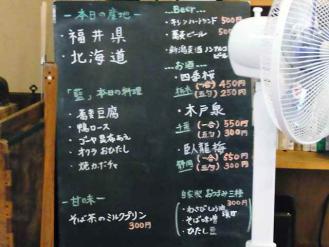 －本日の産地－
・福井県
・北海道
「藍」本日の料理
・蕎麦豆腐
・鴨ロース
・ゴーヤ
・オクラ おひたし
・焼カボチャ
－甘味－
そば茶のミルクプリン
300円
Beer...
・キリンハートランド 500円
・蕎麦ビール 500円
ノンアルコール
ビール
－お酒－
・四春桜
栃木 (一合) 450円
(五勺) 250円
・木戸泉
千葉 (一合) 550円
(五勺) 300円
・臥龍梅
静岡 (一合) 550円
(五勺) 300円
自家製 おつまみ三種
300円
・そば味噌
・ひたし豆